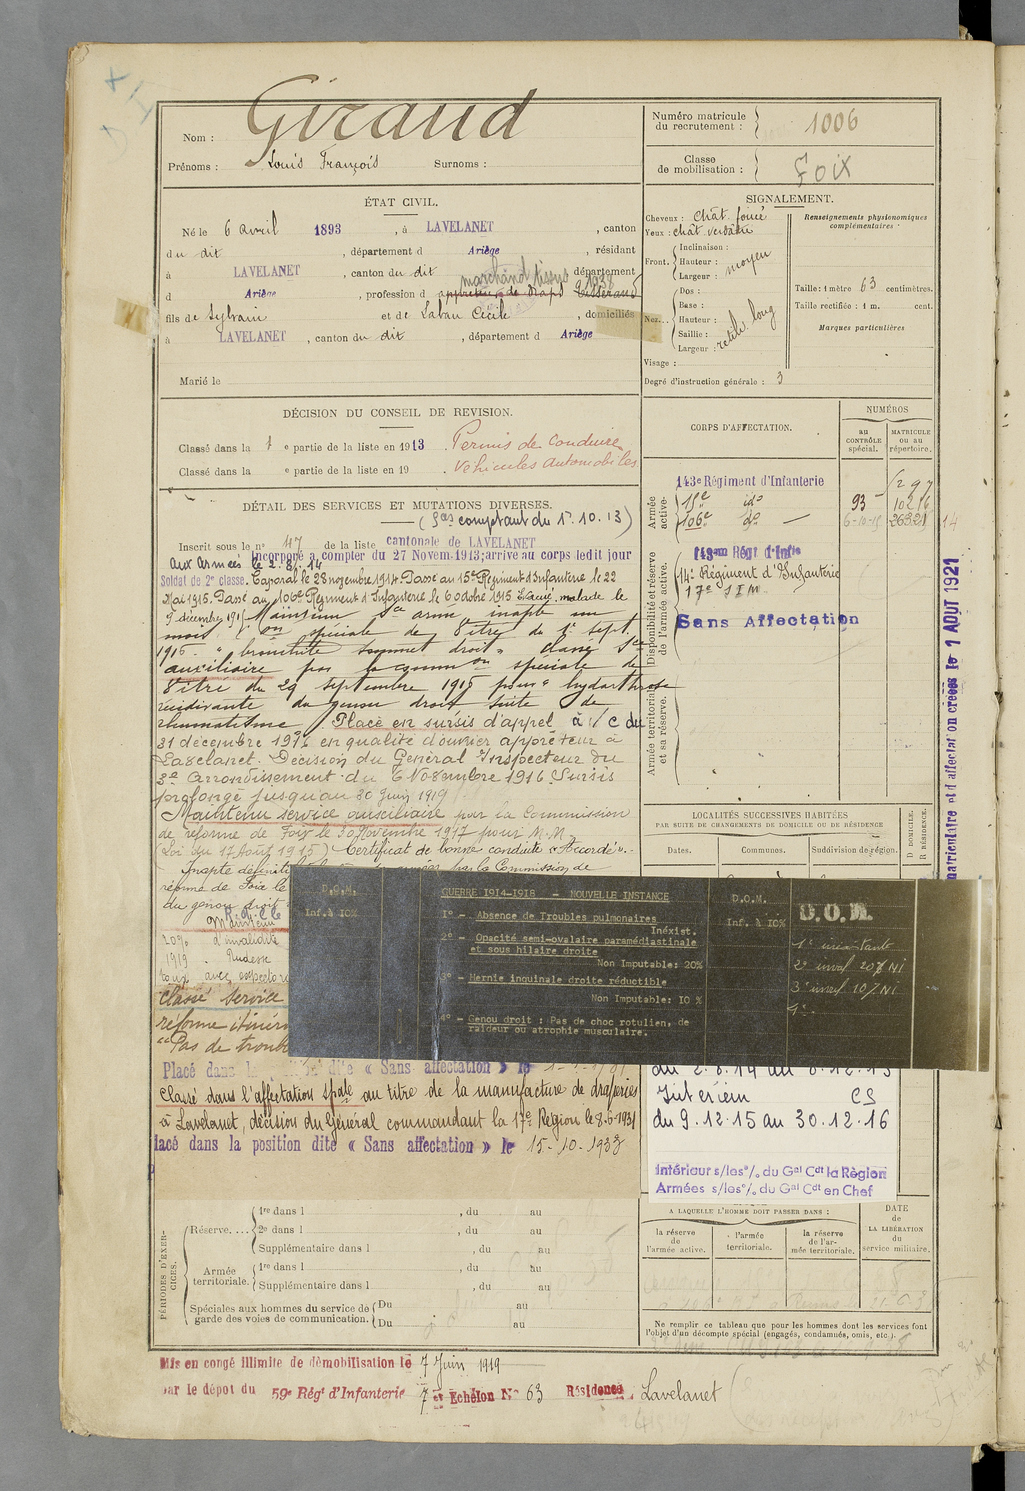 Giraud
Nom :
Prénoms : Louis François Surnoms :
Numéro matricule
du recrutement : 1006
Classe
de mobilisation : Foix
ÉTAT CIVIL.
Né le 6 avril 1893, à LAVELANET, canton
du dit, département d Ariège, résidant
à LAVELANET, canton du dit département
marchand tissus 1938
d Ariège, profession d apprêteur de drap Tisserand
fils de Sylvain et de Laban Cécile, domiciliés
à LAVELANET, canton du dit, département d Ariège
Marié le
SIGNALEMENT.
Cheveux : chât. foncé
Yeux : chât. verdâtre
Front. Inclinaison :
Hauteur : moyen
Largeur :
Nez... Dos :
Base :
Hauteur :
Saillie : rectil. long
Largeur :
Visage :
Degré d'instruction générale : 3
Renseignements physionomiques
complémentaires :
Taille : 1 mètre 63 centimètres.
Taille rectifiée : 1 m. cent.
Marques particulières
DÉCISION DU CONSEIL DE REVISION.
Classé dans la 1 e partie de la liste en 1913. Permis de conduire
Classé dans la e partie de la liste en 19 . Véhicules automobiles
CORPS D'AFFECTATION.
NUMÉROS
au
CONTRÔLE
spécial.
MATRICULE
ou au
répertoire.
Armée
active.
143e Régiment d'Infanterie
15e id°
93 10216
106e d° 6-10-15 26321
Disponibilité et réserve
de l'armée active.
143eme Régt d'Infie
14e Régiment d'Infanterie
17e S I M
Sans Affectation
Armée territoriale
et sa réserve.
matriculaire et d'affectation créées le 1 AOUT 1921
DÉTAIL DES SERVICES ET MUTATIONS DIVERSES.
(Sces comptant du 1er.10.13)
Inscrit sous le n° 47 de la liste cantonale de LAVELANET
Incorporé à compter du 27 Novem. 1913; arrivé au corps ledit jour
Aux Armées le 2.8.14
Soldat de 2e classe. Caporal le 23 novembre 1914. Passé au 15e Régiment d'Infanterie le 22
Mai 1915. Passé au 106e Régiment d'Infanterie le 6 octobre 1915. Evacué, malade le
9 décembre 1915 Maintenu sce armé inapte un
mois Con spéciale de Vitré du 1er sept.
1916. "bronchite sommet droit" Classé sce
auxiliaire par la common spéciale de
Vitré du 29 septembre 1916 pour "hydarthrose
récidivante du genou droit suite de
rhumatisme Placé en sursis d'appel à /c du
31 décembre 1916 en qualité d'ouvrier apprêteur à
Lavelanet. Décision du Général Inspecteur du
3e Arrondissement du 6 Novembre 1916. Sursis
prolongé jusqu'au 30 Juin 1919
Maintenu service auxiliaire par la Commission
de réforme de Foix le 30 Novembre 1917 pour M.M.
(Loi du 17 Août 1915) Certificat de bonne conduite "Accordé".
Inapte par la Commission de
réforme de Foix le
du genou droit
Maintenu
20% d'invalidité
1919 . Rudesse
toux avec expectora
Classé service
réforme
"Pas de troubl
Placé dans la dite « Sans affectation » le
Classé dans l'affectation spale au titre de la manufacture de draperies
à Lavelanet, décision du Général commandant la 17e Région le 8-6-1931
lacé dans la position dite « Sans affectation » le 15-10-1933
LOCALITÉS SUCCESSIVES HABITÉES
PAR SUITE DE CHANGEMENTS DE DOMICILE OU DE RÉSIDENCE
Dates. Communes. Subdivision de région. D DOMICILE. R RÉSIDENCE.
D.O.M.
Inf. à 10%
GUERRE 1914-1918 - NOUVELLE INSTANCE
1° - Absence de Troubles pulmonaires
Inéxist.
2° - Opacité semi-ovalaire paramédiastinale
et sous hilaire droite
Non Imputable: 20%
3° - Hernie inguinale droite réductible
Non Imputable: 10 %
4° - Genou droit : Pas de choc rotulien, de
raideur ou atrophie musculaire.
D.O.M.
Inf. à 10%
D.O.M.
1° inexistante
2° inval 20% NI
3° inval 10% NI
4°
du 2.8.14 au 8.12.15
Intérieur CS
du 9.12.15 au 30.12.16
Intérieur s/les o/o du Gal Cdt la Région
Armées s/les o/o du Gal Cdt en Chef
A LAQUELLE L'HOMME DOIT PASSER DANS :
la réserve
de
l'armée active.
l'armée
territoriale.
la réserve
de l'ar-
mée territoriale.
DATE
de
LA LIBÉRATION
du
service militaire.
Ne remplir ce tableau que pour les hommes dont les services font
l'objet d'un décompte spécial (engagés, condamnés, omis, etc.).
PÉRIODES D'EXER-
CICES.
Réserve.... 1re dans l , du au
2e dans l , du au
Supplémentaire dans l , du au
Armée
territoriale. 1re dans l , du au
Supplémentaire dans l , du au
Spéciales aux hommes du service de
garde des voies de communication. Du au
Du au
Mis en congé illimité de démobilisation le 7 Juin 1919
par le dépot du 59e Régt d'Infanterie 7 et Echelon No 63 Résidence, Lavelanet